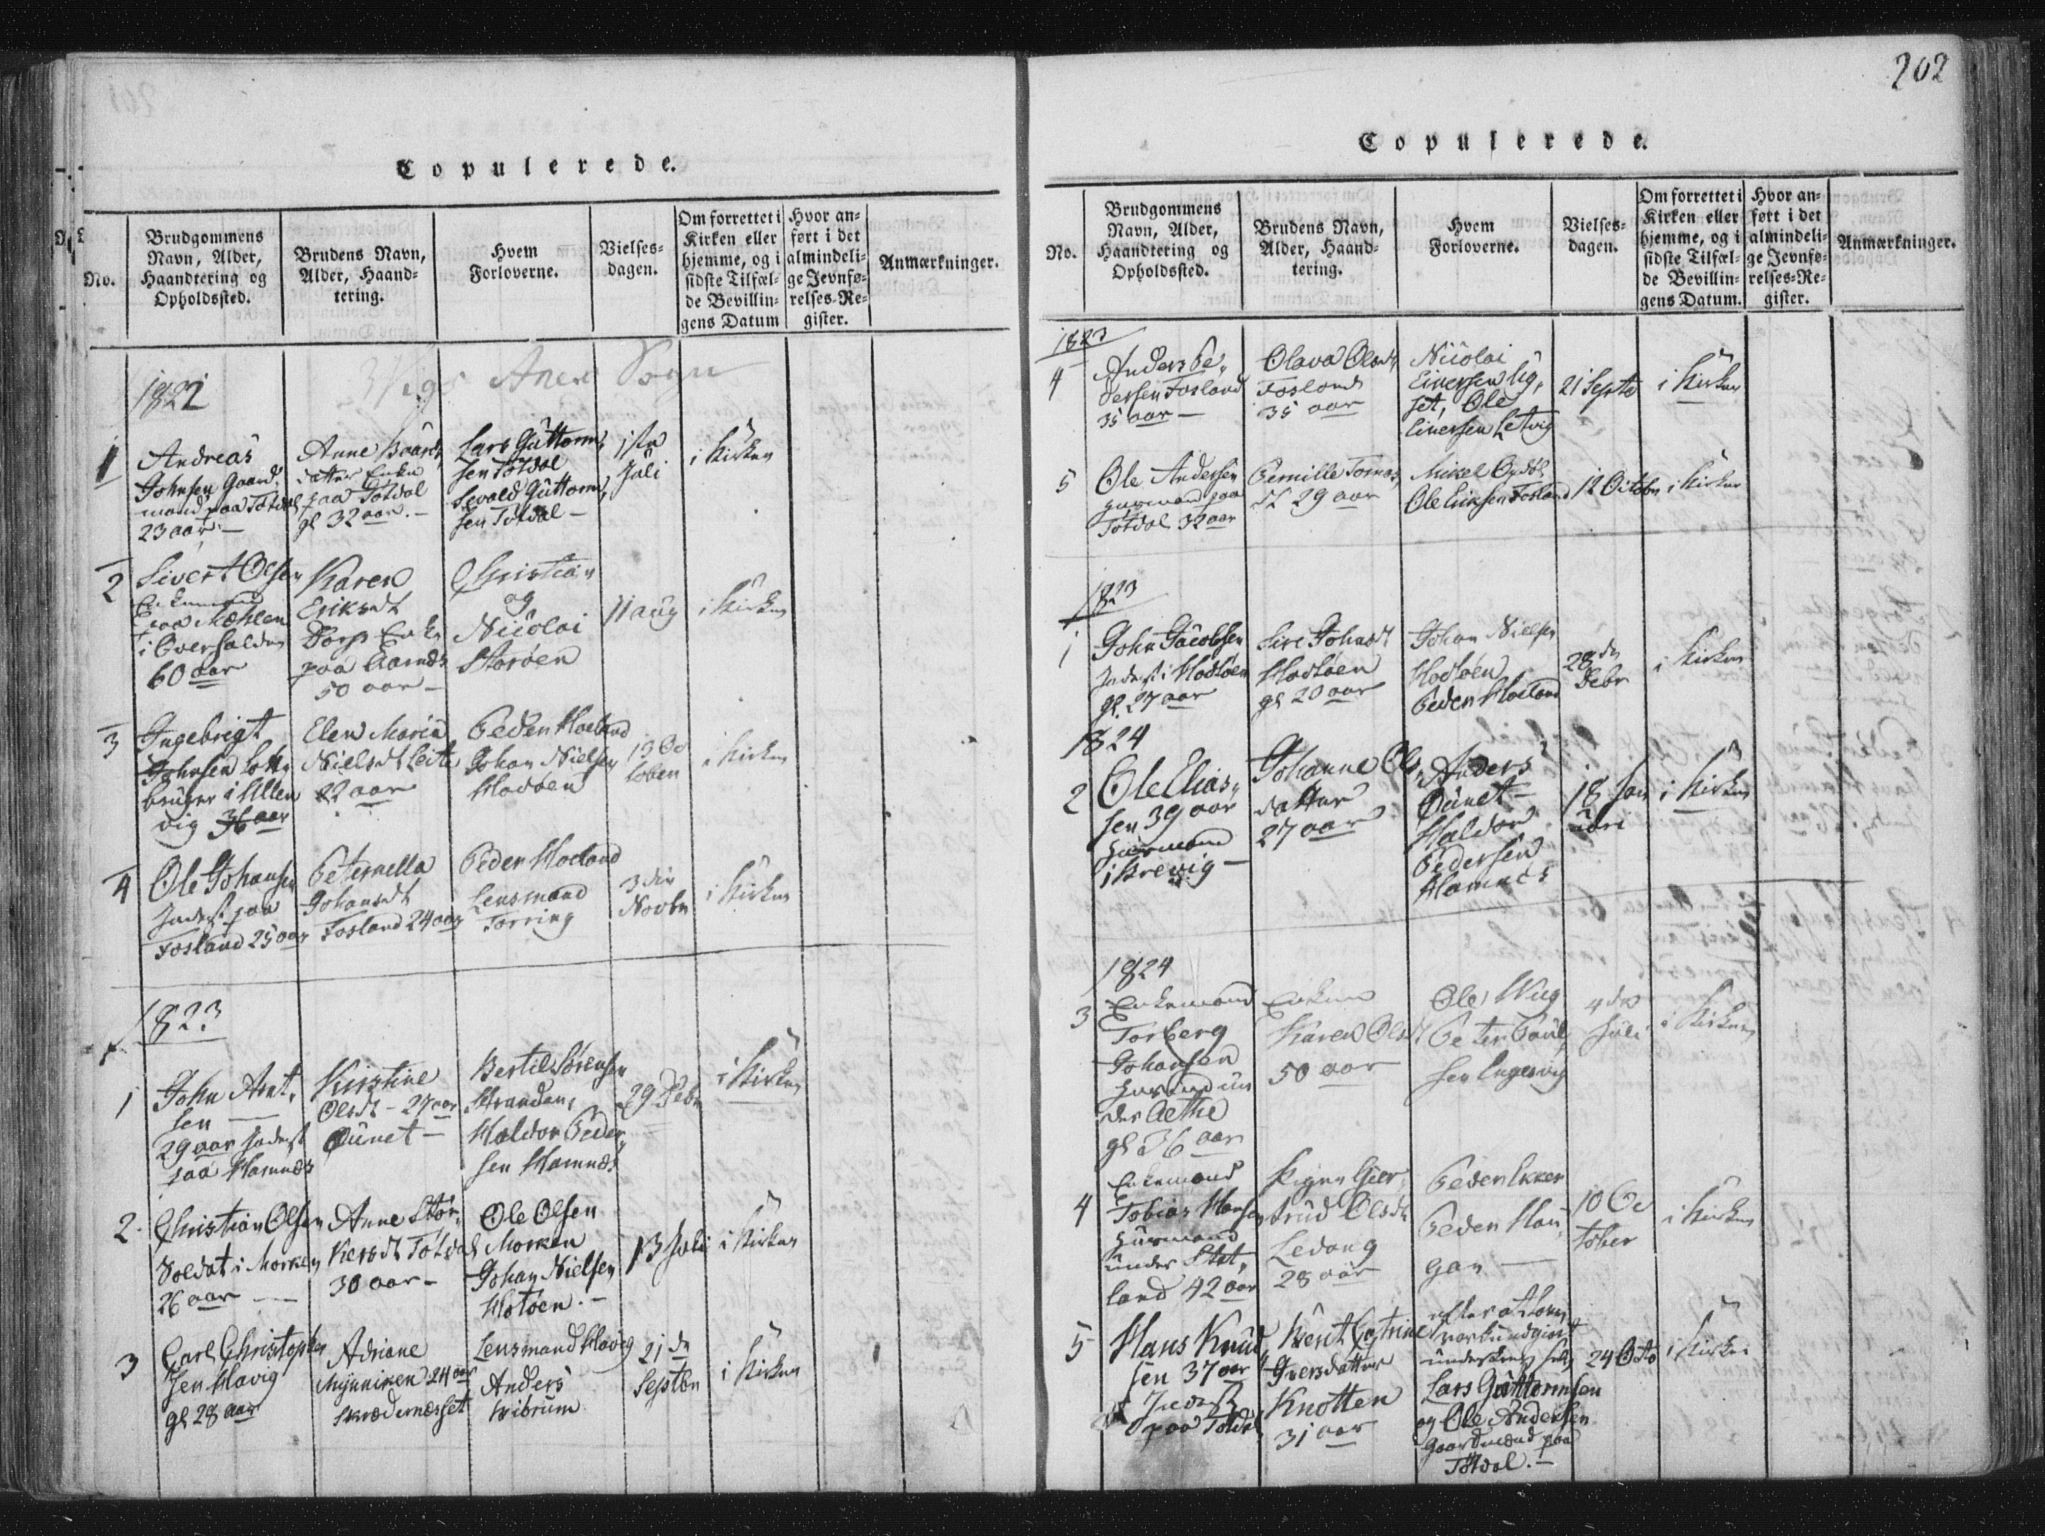 Copulerede.
No.
Brudgommens
Navn, Alder,
Haandtering og
Opholdssted.
Brudens Navn,
Alder, Haand-
tering.
Hvem
Forloverne.
Vielses-
dagen.
Om forrettet i
Kirken eller
hjemme, og i
sidste Tilfæl-
de Bevillin-
gens Datum
Hvor an-
ført i det
almindeli-
ge Jevnfø-
relses-Re-
gister.
Anmærkninger.
1822
Anex Sogn
1
Andreas
Johnsen Gaard,
mand paa Totdal
23 aar. —
Anne
datter Enke
paa Totdal
gl 32 aar. —
Lars Guttorm,
sen Totdal
Sevald Guttorm,
sen Totdal —
1ste
Juli
i Kirken
2
Sivert Olsen
Enkemand
paa Mæhlen
i Overhalden
60 aar
Karen
Eriksdt
Enke
paa Aarnes
50 aar —
Christian
og
Nicolai
Storøen
11 aug
i Kirken
3
Ingebrigt
Johnsen
bruger i
vig 36 aar
Elen Maria
Nielsdt
22 aar
Peder Hoeland
Johan Nielsen
Hodøen
13 Oc
tober
i Kirken
4
Ole Johansen
Inderst paa
Fosland 25 aar
Peternella
Johansdt
Fosland 24 aar
Peder Hoeland
Lensmand
Torring
3die
Novbr
i Kirken
1823
1
John Arnt,
sen —
29 aar Inderst
paa Hamnes
Kirstine
Olsdt – 27 aar
Dunet —
Bertil Sørensen
Stranden,
Haldor Peder,
sen Hamnes
29
i Kirken
2.
Christian Olsen
Soldat i Morken
26 aar —
Anne Stør,
kersdt Totdal
30 aar —
Ole Olsen
Morken
Johan Nielsen
Hotøen. —
13 Juli
i Kirken
3
Carl Christopher
sen Havig
gl 28 aar
Adriane
24 aar
Lensmand Havig
Anders
Wibrum
21de
Septbr
i Kirken
202
Copulerede.
No.
Brudgommens
Navn, Alder,
Haandtering og
Opholdssted.
Brudens Navn,
Alder, Haand-
tering.
Hvem
Forloverne.
Vielses-
dagen.
Om forrettet i
Kirken eller
hjemme, og i
sidste Tilfæl-
de Bevillin-
gens Datum.
Hvor an-
ført i det
almindeli-
ge Jevnfø-
relses-Re-
gister.
Anmærkninger.
1823
4
Anders Pe,
dersen Fosland
35 aar —
Olava Olsdt
Fosland
35 aar
Nicolai
Eiversen
set, Ole
Eiversen Setvig
21 Septb
i Kirken
5
Ole Andersen
Huusmand paa
Totdal 32 aar
Pernille Tomas,
dt 29 aar
Mikel
Ole Eriksen Fosland
12 Octobr
i Kirken
1823
1
John Jacobsen
Inderst i Hodøen
gl. 27 aar
Sire Johnsdt
Hodøen
gl 20 aar
Johan Nielsen
Hodøen
Peder Hoeland
28de
i Kirken
1824
2
Ole Elias,
sen 39 aar
Huusmand
i Krevig —
Johanne Ols,
datter
27 aar
Anders
Dunet —
Haldor
Pedersen
Hamnes
18 Jan
uari
i Kirken
1824
3
Enkemand
Torberg
Johansen
Huusmand un
der Aethe
gl 36 aar
Enken
Karen Olsdt
50 aar
Ole Wiig
Peter Poul,
sen Engesvig
4de
Juli
i Kirken
4
Enkemand
Tobias Hansen
Huusmand
under Stet,
land 42 aar
Pigen Gier,
trud Olsdt
Ledang
28 aar
Peder Ekker
Peder Hou,
gan —
10 Oc
tober
i Kirken
5
Hans Knud,
sen 37 aar
Inderst
paa Totdal
Berit Catrine
Iversdatter
Knotten
31 aar
Lars Guttormsen
og Ole Andersen
Gaardmænd paa
Totdal. —
24 Octo
i Kirken